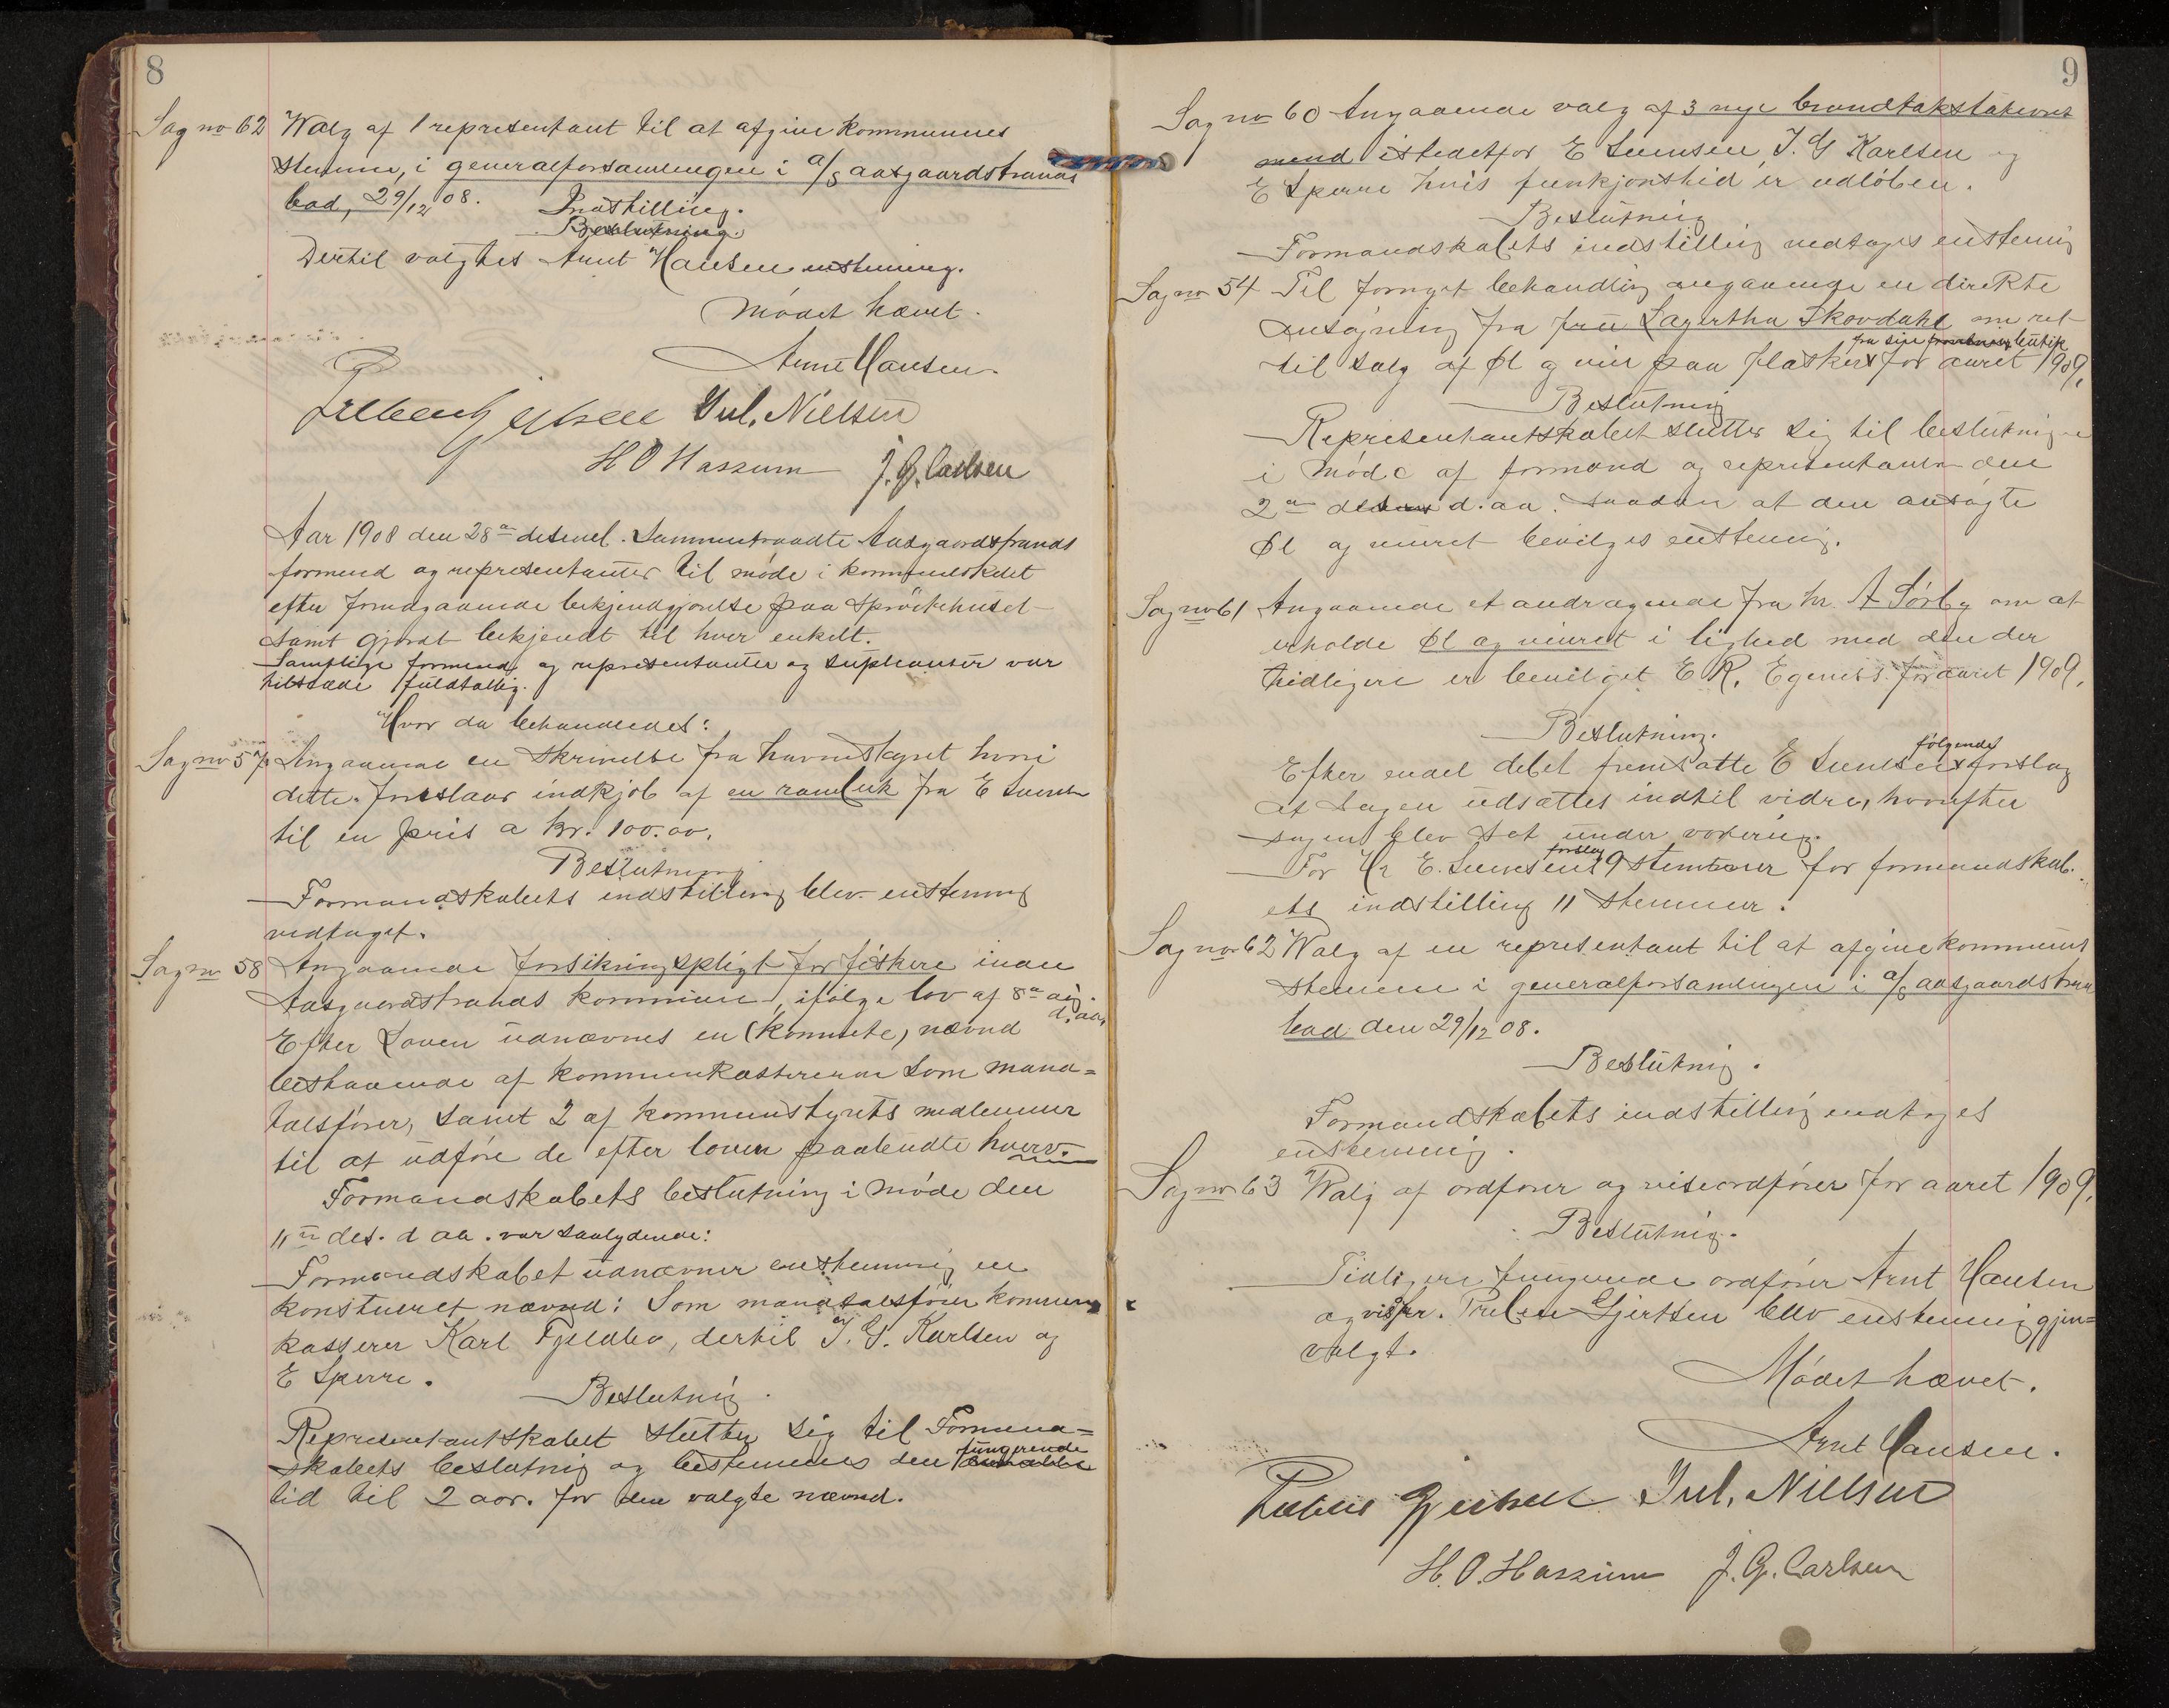 8
Sag no 62 Walg af 1 representant til at afgive kommunens
stemme, i generalforsamlingen i a/s aasgaardstrands
bad, 29/12 08. Indstilling.
Beslutning.
Dertil valgtes Arnt Hansen enstemmig.
Mødet hævet.
Arnt Hansen
Jul. Nielsen
H O Hassum J. G. Carlsen
Aar 1908 den 28de desemb. Sammentraadte Aasgaardstrands
formend og representanter til møde i kommunelokalet
efter forudgaaende bekjendgjørelse paa sprøitehuset
samt gjordt bekjendt til hver enkelt.
Samtlige formend og representanter og supleanter var
tilstæde fuldtallig.
Hvor da behandledes:
Sag no 57 Angaaende en skrivelse fra havnestyret hvori
dette foreslaar indkjøb af en rambuk fra E Svensen
til en pris a kr. 100.00.
Beslutning
Formandskabets indstilling blev enstemmig
vedtaget.
Sag no 58 Angaaende forsikringspligt for fiskere inden
Aasgaardstrands kommune, ifølge lov af 8de aug.
d. aa.
Efter Loven udnævnes en (komitete) nævnd
bestaaende af kommunekassereren som mand=
talsfører, samt 2 af kommunestyrets medlemmer
til at udføre de efter loven paabudte hverv.
Formandskabets beslutning i møde den
11te des. d aa. var saalydende:
Formandskabet udnævner enstemmig en
konstueret nævnd: Som mandtalsfører kommune
kasserer Karl Fjeldbo, dertil J. G. Karlsen og
E Sperre.
Beslutning.
Representantskabet slutter sig til Formand=
skabets beslutning og bestemmes den fungerende
tid til 2 aar. for den valgte nævnd.
9
Sag no 60 Angaaende valg af 3 nye brandtakstations
mend istedetfor E Svensen, J. G Karlsen og
E Sperre hvis funkjonstid er udløben.
Beslutning
Formandskabets indstilling vedtages enstemmig
Sag no 54 Til fornyet behandling angaaende en direkte
ansøgning fra fru Lagertha Skovdahl om ret
fra sin butik
til salg af Øl og vin paa flasker x for aaret 1909.
Beslutning
Representantskabet slutter sig til beslutningen
i møde af formænd og representanter den
2den d. aa. saadan at den ansøgte
Øl og vinret bevilges enstemmig.
Sag no 61 Angaaende et andragende fra hr. A Sørby om at
erholde Øl og vinret i lighed med den der
tidligere er bevilget E R. Egeness for aaret 1909.
Beslutning.
følgende
Efter endel debat fremsatte E Svensen x forslag
at Sagen udsættes indtil vidre, hvorefter
sagen blev sat under votering.
forslag
For Hr E. Svensens 9 stemmer for formandskab-
ets indstilling 11 stemmer.
Sag no 62 Walg af en representant til at afgive kommunens
stemme i generalforsamlingen i a/s aasgaardstrands
bad den 29/12 08.
Beslutnig.
Formandskabets indstilling vedtages
enstemmig.
Sag no 63 Walg af ordfører og viseordfører for aaret 1909.
Beslutnig.
Tidligere fungerende ordfører Arnt Hansen
og viseofr. Preben Gjertsen blev enstemmig gjen=
valgt.
Mødet hævet.
Arnt Hansen.
Preben Gjertsen Jul. Nielsen
H. O. Hassum J. G. Carlsen